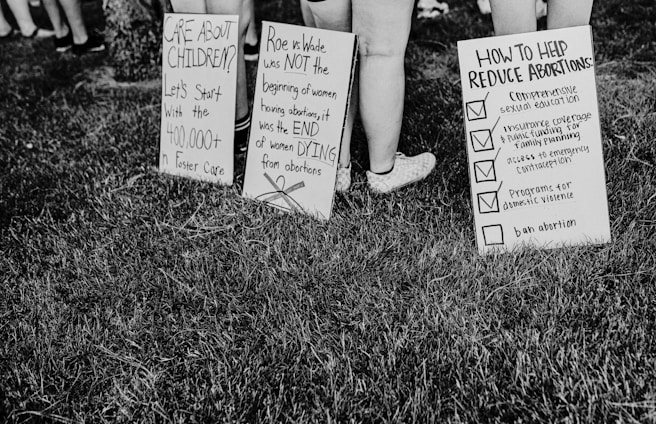 CARE ABOUT
CHILDREN?
Let's Start
With the
400,000+
n Foster Care
Roe vs Wade
was NOT the
beginning of women
having abortions, it
was the END
of women DYING
from abortions
HOW TO HELP
REDUCE ABORTIONS
Comprehensive
sexual education
Insurance coverage
& public funding for
family planning
access to emergency
contraception
Programs for
domestic violence
ban abortion